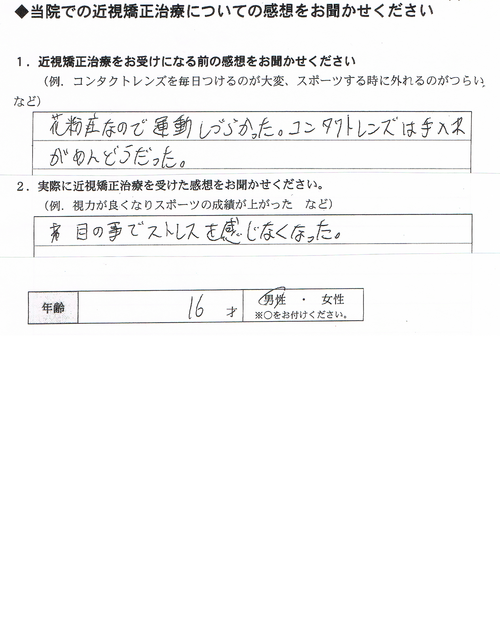 ◆当院での近視矯正治療についての感想をお聞かせください
1．近視矯正治療をお受けになる前の感想をお聞かせください
（例．コンタクトレンズを毎日つけるのが大変、スポーツする時に外れるのがつらい
など）
花粉症なので運動しづらかった。コンタクトレンズは手入れ
がめんどうだった。
2．実際に近視矯正治療を受けた感想をお聞かせください。
（例．視力が良くなりスポーツの成績が上がった　など）
目の事でストレスを感じなくなった。
年齢 16 才 男性 ・ 女性
※○をお付けください。